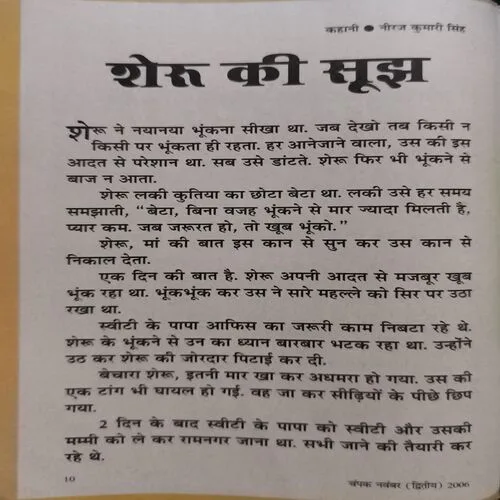 कहानी ● नीरज कुमारी सिंह
शेरू की सूझ
शेरू ने नयानया भूंकना सीखा था. जब देखो तब किसी न
किसी पर भूंकता ही रहता. हर आनेजाने वाला, उस की इस
आदत से परेशान था. सब उसे डांटते. शेरू फिर भी भूंकने से
बाज न आता.
शेरू लकी कुतिया का छोटा बेटा था. लकी उसे हर समय
समझाती, “बेटा, बिना वजह भूंकने से मार ज्यादा मिलती है,
प्यार कम. जब जरूरत हो, तो खूब भूंको.”
शेरू, मां की बात इस कान से सुन कर उस कान से
निकाल देता.
एक दिन की बात है. शेरू अपनी आदत से मजबूर खूब
भूंक रहा था. भूंकभूंक कर उस ने सारे महल्ले को सिर पर उठा
रखा था.
स्वीटी के पापा आफिस का जरूरी काम निबटा रहे थे.
शेरू के भूंकने से उन का ध्यान बारबार भटक रहा था. उन्होंने
उठ कर शेरू की जोरदार पिटाई कर दी.
बेचारा शेरू, इतनी मार खा कर अधमरा हो गया. उस की
एक टांग भी घायल हो गई. वह जा कर सीढ़ियों के पीछे छिप
गया.
2 दिन के बाद स्वीटी के पापा को स्वीटी और उसकी
मम्मी को ले कर रामनगर जाना था. सभी जाने की तैयारी कर
रहे थे.
10
चंपक नवंबर (द्वितीय) 2006